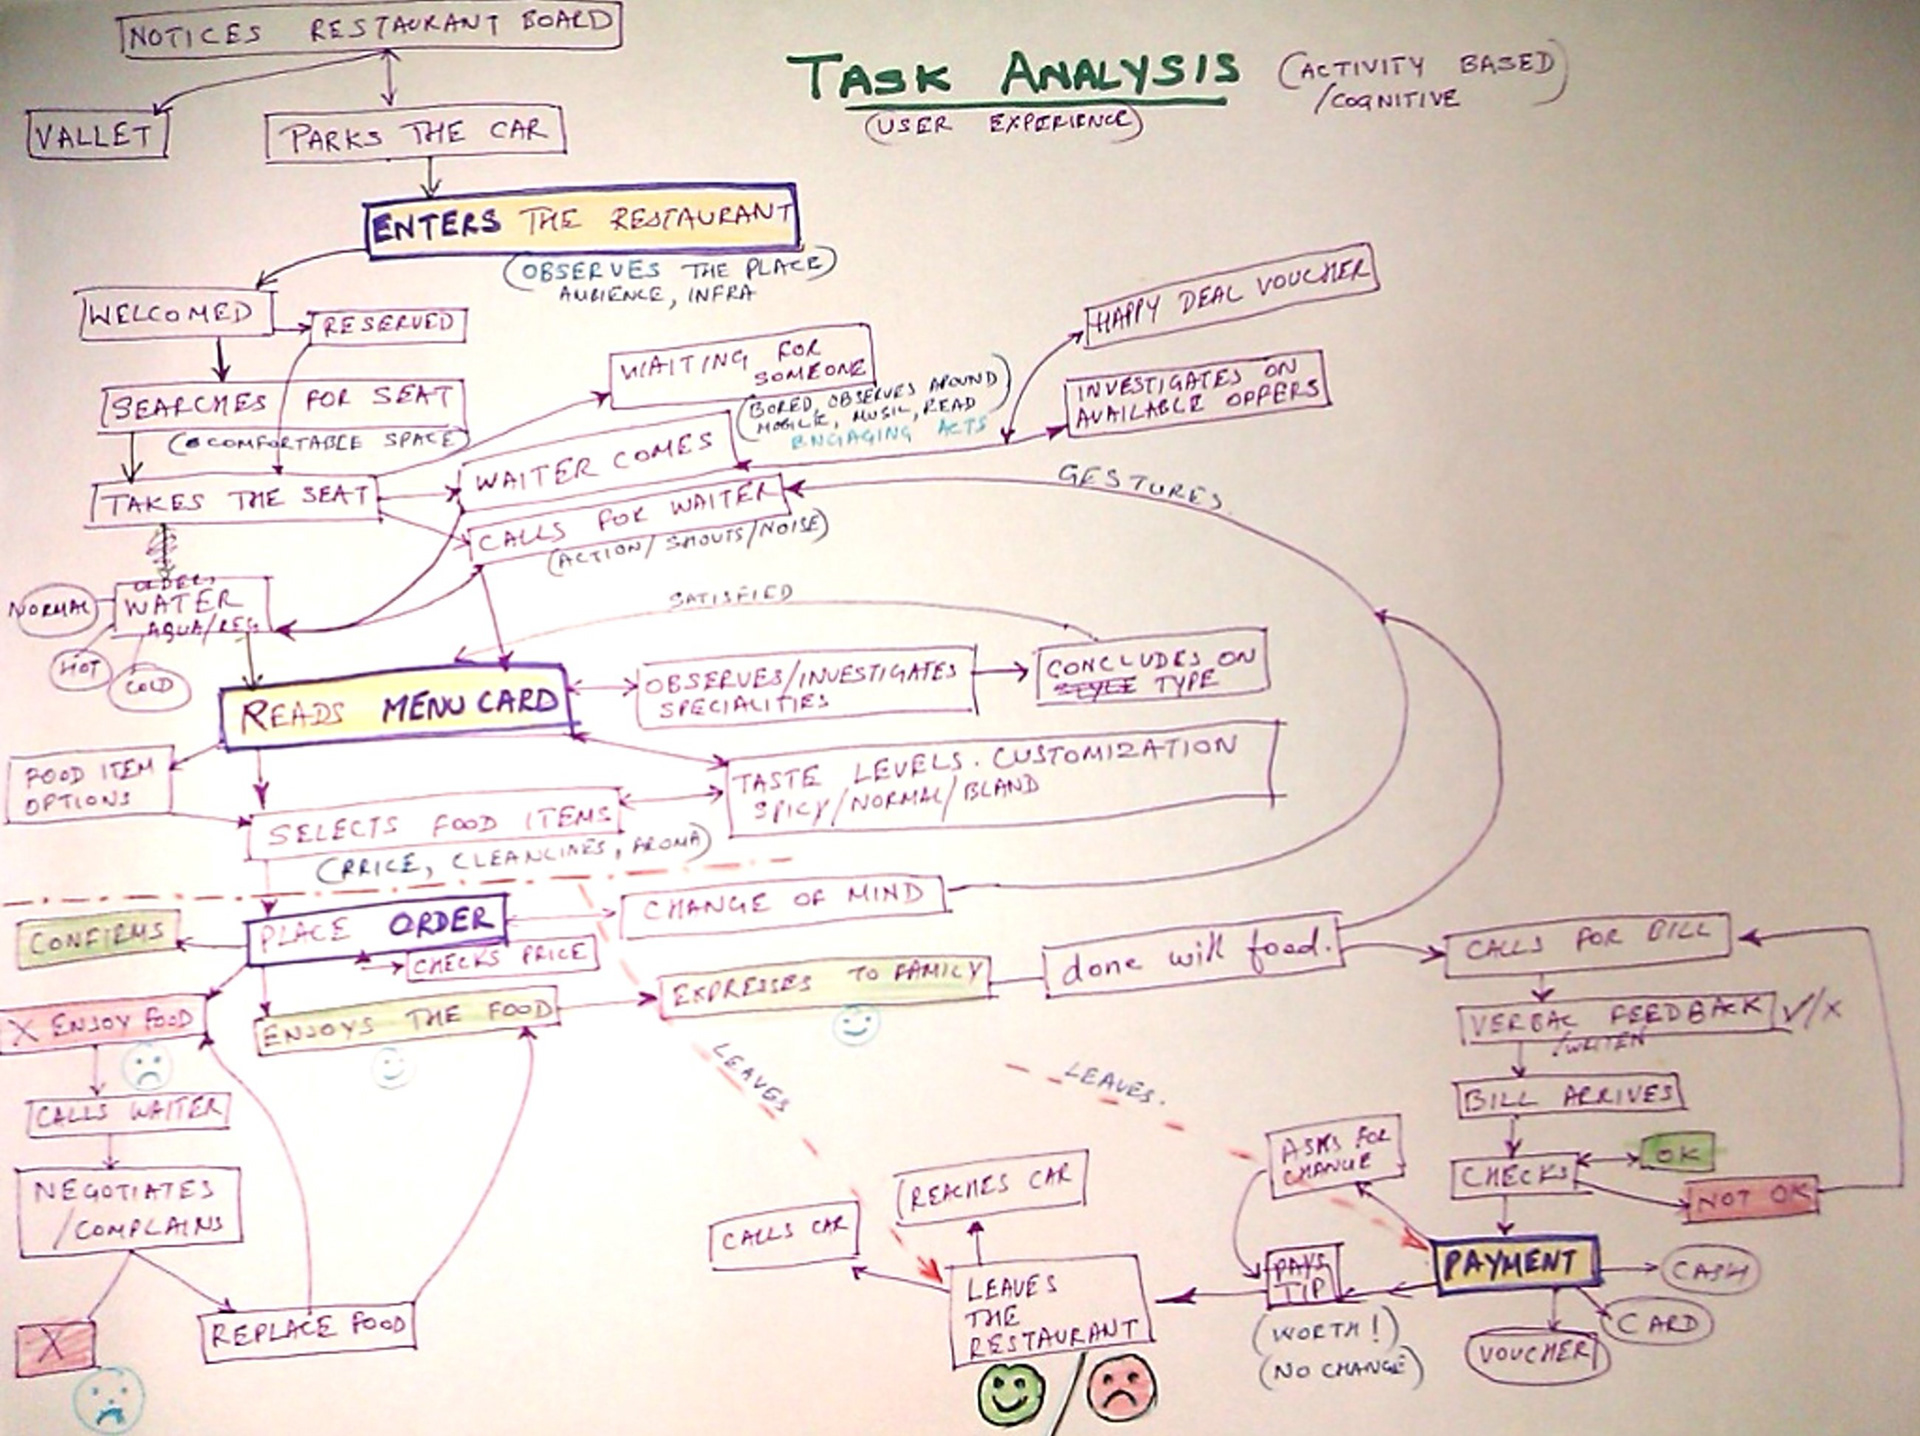 NOTICES RESTAURANT BOARD
TASK ANALYSIS (ACTIVITY BASED)
/COGNITIVE
(USER EXPERIENCE)
VALLET
PARKS THE CAR
ENTERS THE RESTAURANT
(OBSERVES THE PLACE)
AMBIENCE, INFRA
WELCOMED
RESERVED
HAPPY DEAL VOUCHER
WAITING FOR
SOMEONE
INVESTIGATES ON
AVAILABLE OFFERS
SEARCHES FOR SEAT
(COMFORTABLE SPACE)
(BORED, OBSERVES AROUND)
MOBILE, MUSIC, READ
ENGAGING ACTS
WAITER COMES
TAKES THE SEAT
CALLS FOR WAITER
(ACTION/SHOUTS/NOISE)
GESTURES
NORMAL
WATER
AQUA/REG
HOT
COLD
SATISFIED
READS MENU CARD
OBSERVES/INVESTIGATES
SPECIALITIES
CONCLUDES ON
STYLE TYPE
FOOD ITEM
OPTIONS
TASTE LEVELS. CUSTOMIZATION
SPICY/NORMAL/BLAND
SELECTS FOOD ITEMS
(PRICE, CLEANLINES, AROMA)
CONFIRMS
PLACE ORDER
CHANGE OF MIND
CHECKS PRICE
X ENJOY FOOD
ENJOYS THE FOOD
EXPRESSES TO FAMILY
done will food.
CALLS FOR BILL
VERBAL FEEDBACK ✓/X
/WRITEN
BILL ARRIVES
CHECKS
OK
NOT OK
LEAVES
LEAVES.
CALLS WAITER
NEGOTIATES
/COMPLAINS
X
REPLACE FOOD
ASKS FOR
CHANGE
REACHES CAR
CALLS CAR
LEAVES
THE
RESTAURANT
PAYS
TIP
(WORTH!)
(NO CHANGE)
PAYMENT
CASH
CARD
VOUCHER